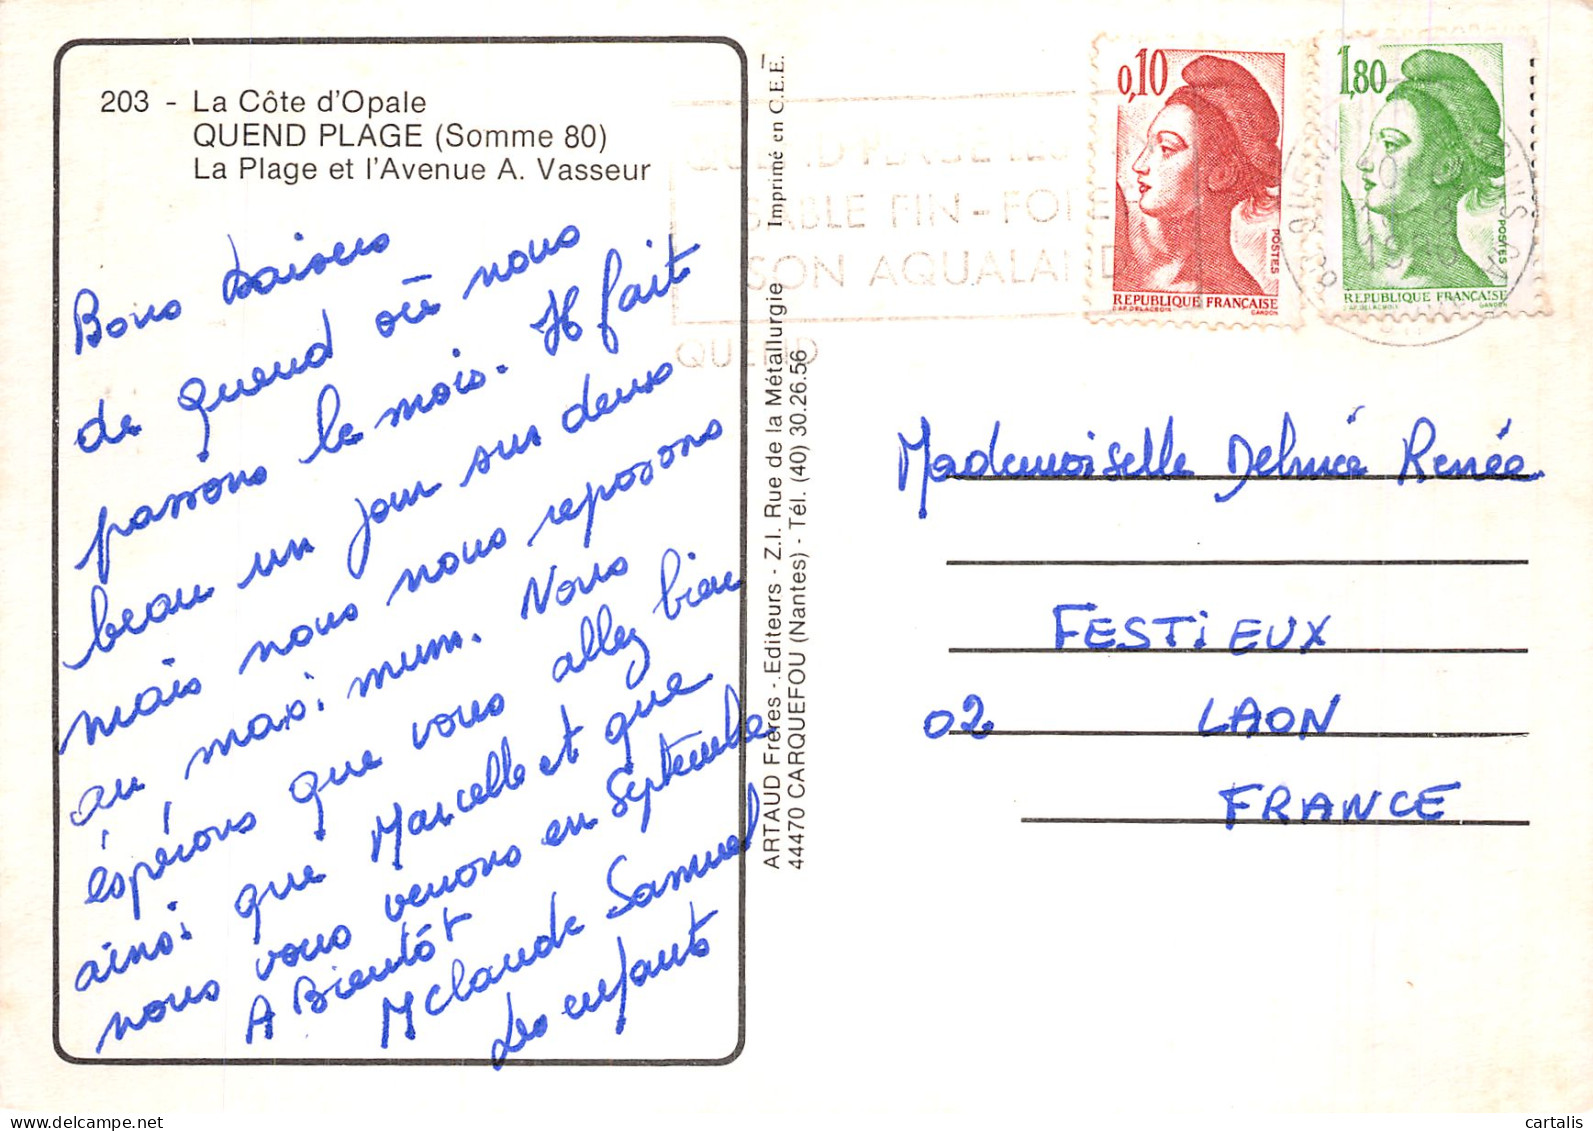 203 - La Côte d'Opale
QUEND PLAGE (Somme 80)
La Plage et l'Avenue A. Vasseur
Bons baisers
de Quend où nous
passons le mois. Il fait
beau un jour sur deux
mais nous nous reposons
au maximum. Nous
éspérons que vous allez bien
ainsi que Marcelle et que
nous vous verrons en Septembre
A Bientôt
MClaude Samuel
Les enfants
ARTAUD Frères - Editeurs - Z.I. Rue de la Métallurgie Imprimé en C.E.E.
44470 CARQUEFOU (Nantes) - Tél. (40) 30.26.56
QUEND PLAGE LES
SABLE FIN - FORE
SON AQUALAND
QUEND
0,10
POSTES
REPUBLIQUE FRANÇAISE
D'AP. DELACROIX GANDON
1,80
POSTES
REPUBLIQUE FRANÇAISE
D'AP. DELACROIX GANDON
Mademoiselle Delmée Renée
FESTIEUX
02 LAON
FRANCE
cartalis